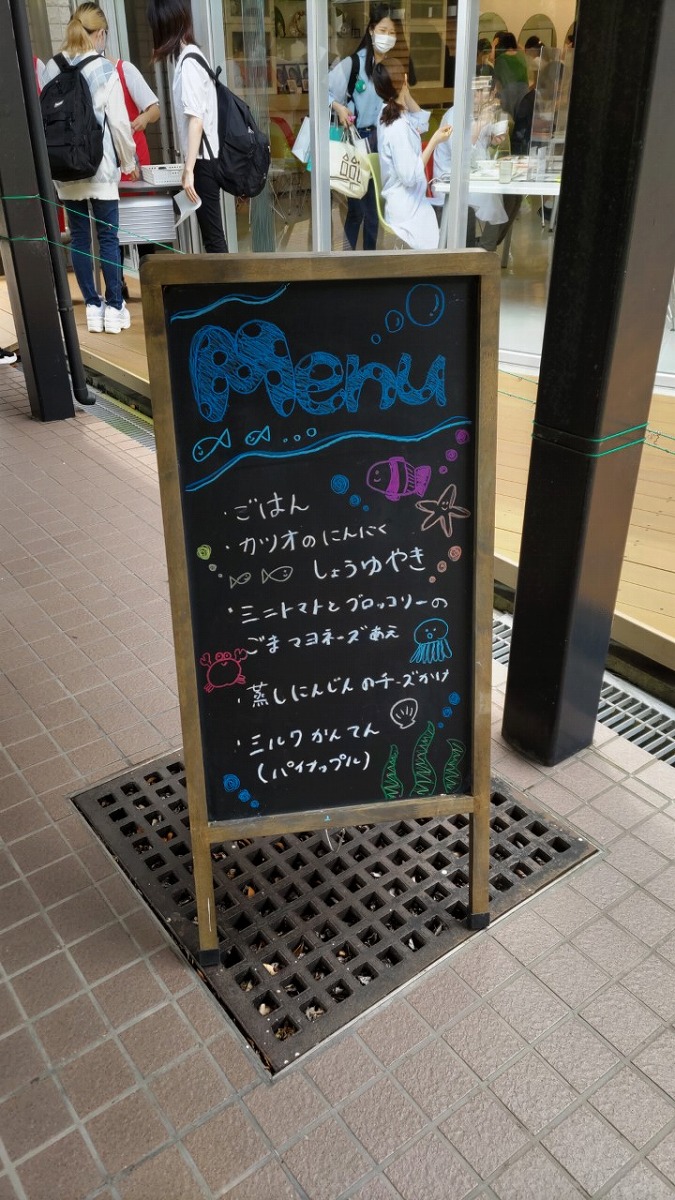 Menu
・ごはん
・カツオのにんにく
しょうゆやき
・ミニトマトとブロッコリーの
ごまマヨネーズあえ
・蒸しにんじんのチーズかけ
・ミルクかんてん
(パイナップル)